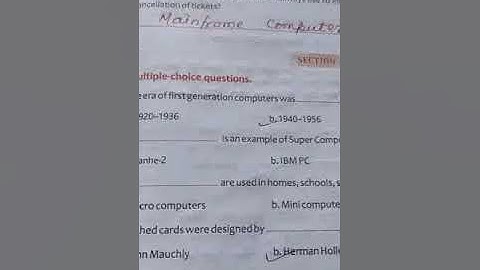 ncellation of tickets?
Mainframe Computer
SECTION
ultiple-choice questions.
e era of first generation computers was
920–1936 b. 1940–1956
is an example of Super Comp
anhe-2 b. IBM PC
are used in homes, schools, s
cro computers b. Mini compute
hed cards were designed by
hn Mauchly b. Herman Holle